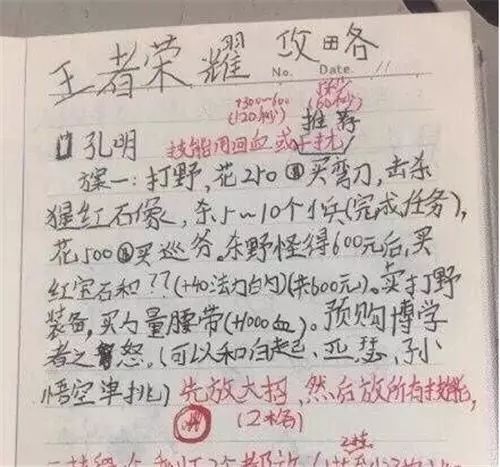 王者荣耀 攻略
No. Date. 11
+300~600 5秒
(120秒) (60秒)
推荐
孔明 技能用回血或干扰
方案一:打野,花250买弯刀,击杀
猩红石像,杀5~10个小兵(完成任务),
花500买巡务。杀野怪得600元后,买
红宝石和??(+40法力白勺)(共600元)。卖打野
装备,买力量腰带(+1000血)。预购博学
者之怒。(可以和白起、亚瑟、孙
悟空单挑)先放大招,然后放所有技能,
(2档)